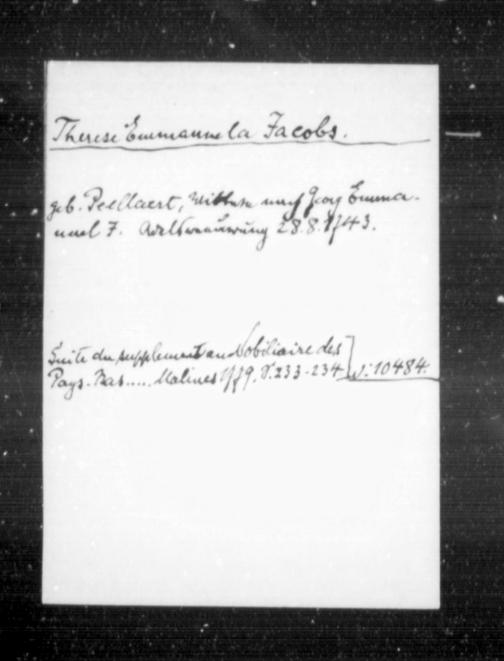 Therese Emmanuela Jacobs.
geb. Peellaert, Wittwe nach Georg Emma-
nuel J. Adelserneuerung 28.8.1743.
Suite du supplement au Nobiliaire des
Pays-Bas..... Malines 1779, S. 233-234
W: 10484.